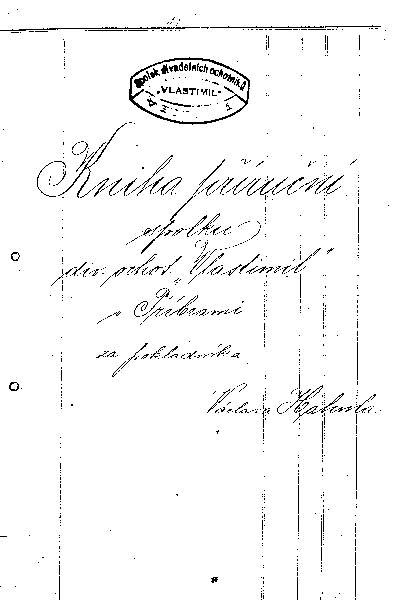 Spolek divadelních ochotníků
"VLASTIMIL"
Kniha příruční
spolku
div. ochot. „Vlastimil"
v Příbrami
za pokladníka
Václava